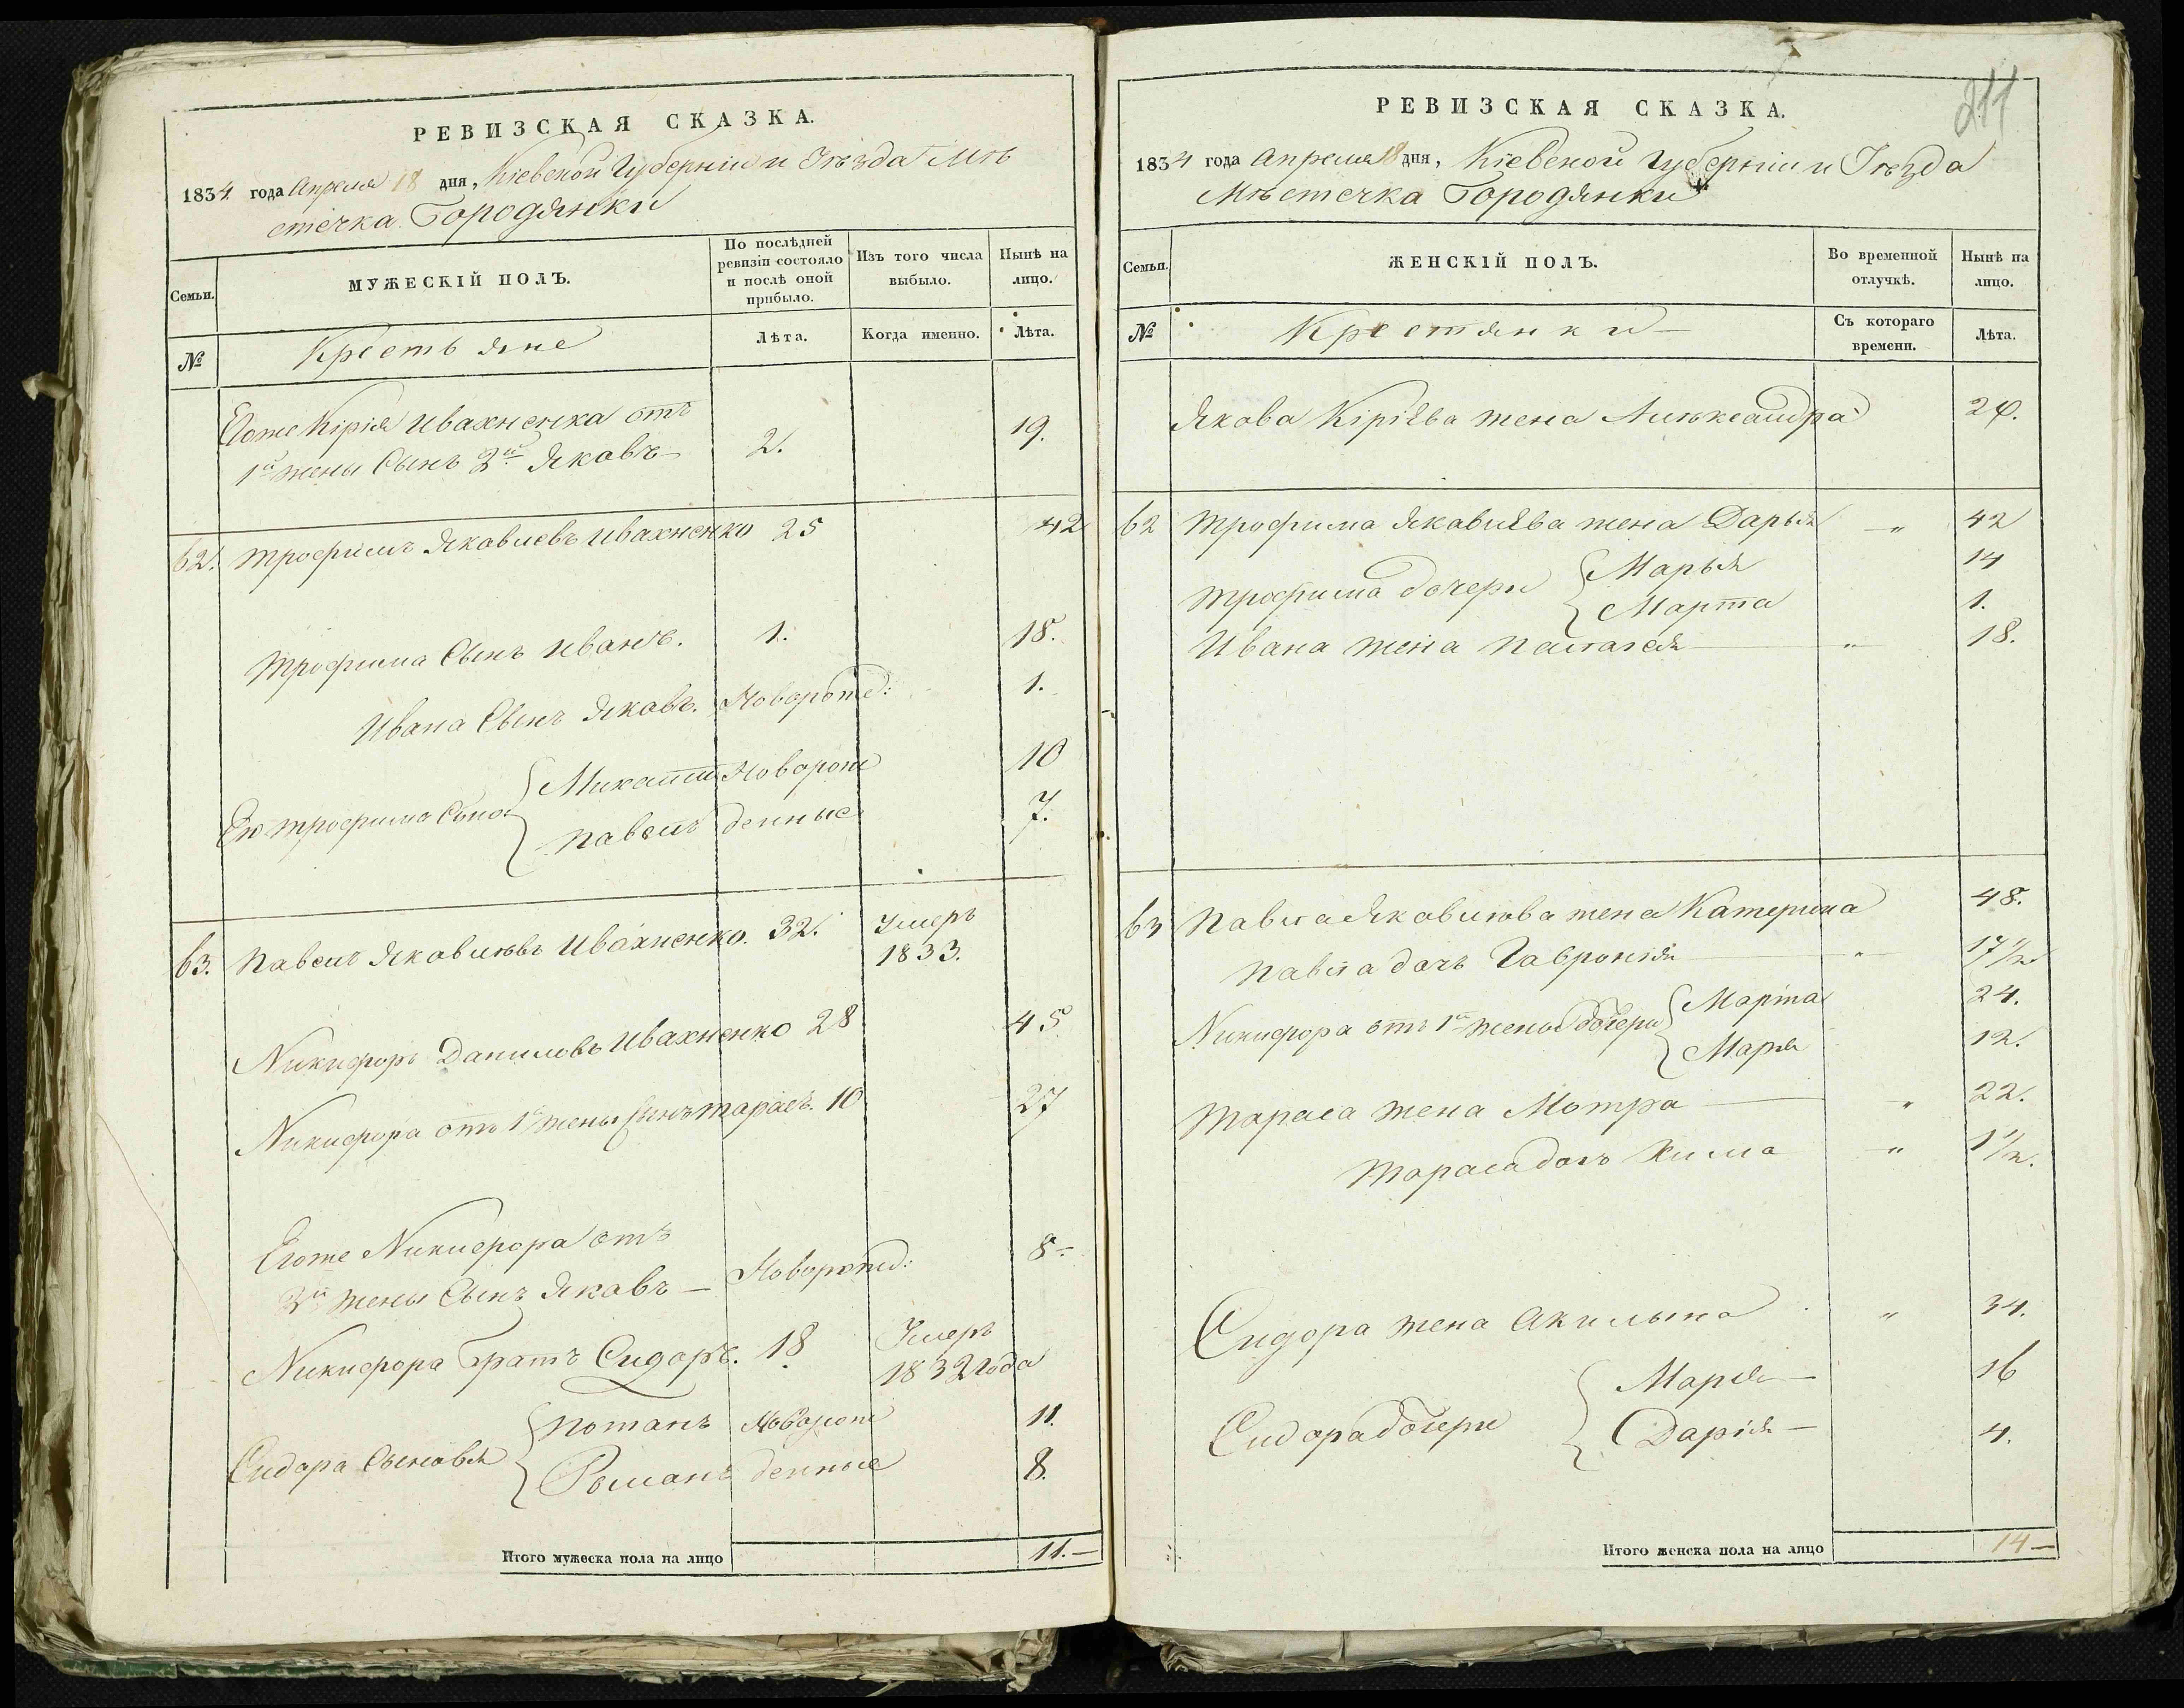 РЕВИЗСКАЯ СКАЗКА.
1834 года Апреля 18 дня, Кіевской Губерніи и Уѣзда Мѣ
стечка Городянки
Семьи.
МУЖЕСКІЙ ПОЛЪ.
По послѣдней ревизіи состояло и послѣ оной прибыло.
Изъ того числа выбыло.
Нынѣ на лицо.
№
Крестьяне
Лѣта.
Когда именно.
Лѣта.
Егоже Кірія Ивахненка отъ
1й жены Сынъ 2й Яковъ 2. 19.
62. Трофимъ Яковлевъ Ивахненко 25 42
Трофима Сынъ Иванъ. 1. 18.
Ивана Сынъ Яковъ. Новорожд: 1.
Трофима Новорож 10
Павелъ денные 7.
63. Павелъ Яковлевъ Ивахненко. 32. Умеръ
1833.
Никифоръ Даниловъ Ивахненко 28 45
Никифора отъ 1й жены Сынъ Тарасъ. 10 27
Егоже Никифора отъ
2й жены Сынъ Яковъ — Новорожд: 8-
Никифора Братъ Сидоръ. 18 Умеръ
1832 года
Сидора Сыновья
Потапъ Новорож 11.
Романъ денные 8.
Итого мужеска пола на лицо 11.—
211
РЕВИЗСКАЯ СКАЗКА.
1834 года Апреля 18 дня, Кіевской Губерніи и Уѣзда
Мѣстечка Городянки
Семьи.
ЖЕНСКІЙ ПОЛЪ.
Во временной отлучкѣ.
Нынѣ на лицо.
№
Крестянки —
Съ котораго времени.
Лѣта.
Якова Кіріѣва жена 20.
62 Трофима Яковлѣва жена Дарья " 42
Трофима дочери
Марья 14
Марта 1.
Ивана жена Палагея " 18.
63 Павла Яковлѣва жена Катерина 48.
Павла дочь Гавронія " 17 1/2
Никифора отъ 1й жены дочери
Марта 24.
Марія 12.
Тараса жена Мотра " 22.
Тараса дочь Хима " 1 1/2.
Сидора жена Акилына " 34.
Сидора дочери
Марія — 16
Дарія — 4.
Итого женска пола на лицо 14 —